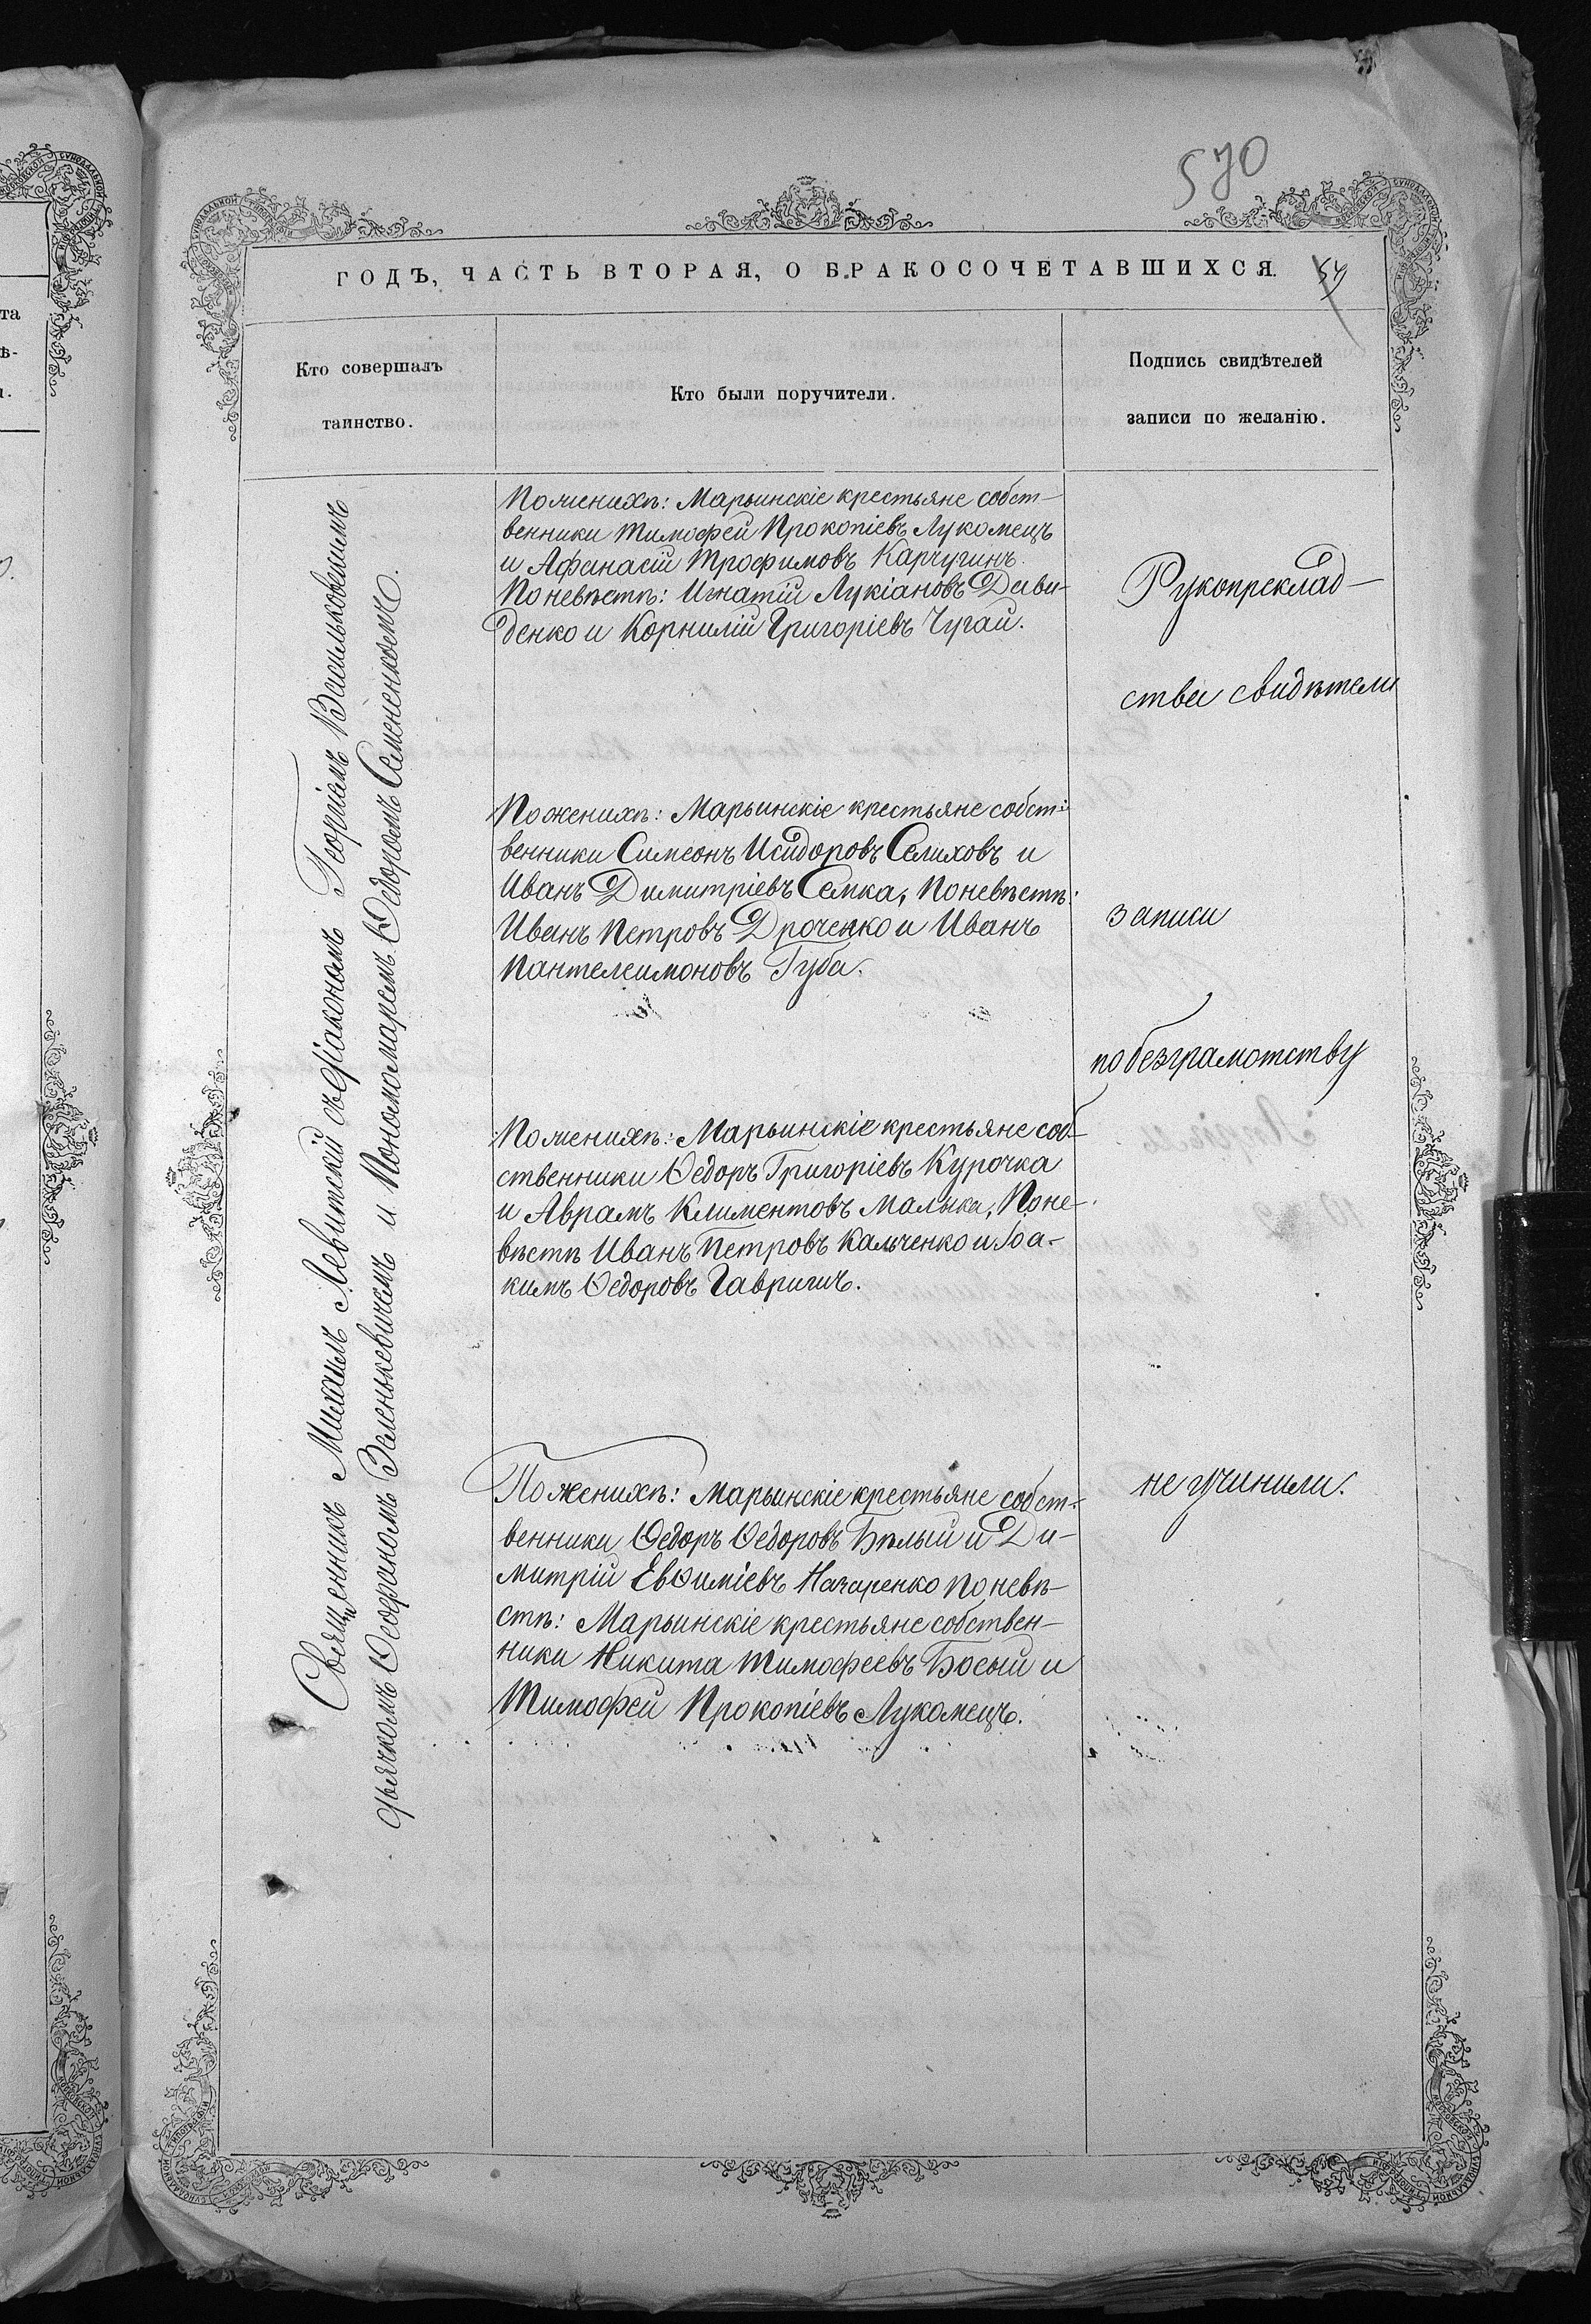 570
ГОДЪ, ЧАСТЬ ВТОРАЯ, О БРАКОСОЧЕТАВШИХСЯ.
Кто совершалъ
таинство.
Кто были поручители.
Подпись свидѣтелей
записи по желанію.
Священникъ Михаилъ Левитскій съ діакономъ Георгіемъ Васильковскимъ
дьячкомъ Ѳеофаномъ Зеленькевичемъ и Пономаремъ Ѳедоромъ Семененкомъ.
По женихѣ: Марьинскіе крестьяне собст-
венники Тимофей Прокопіевъ Лукомецъ
и Афанасій Трофимовъ Карчугинъ.
По невѣстѣ: Игнатій Лукіановъ Дави-
денко и Корнилій Григоріевъ Чугай.
По женихѣ: Марьинскіе крестьяне собст-
венники Симеонъ Исидоровъ Селиховъ и
Иванъ Димитріевъ Семка, По невѣстѣ:
Иванъ Петровъ Дроченко и Иванъ
Пантелеимоновъ Губа.
По женихѣ: Марьинскіе крестьяне соб-
ственники Ѳедоръ Григоріевъ Курочка
и Аврамъ Климентовъ Малыка, По не-
вѣстѣ Иванъ Петровъ Кальченко и Іоа-
кимъ Ѳедоровъ Гавришъ.
По женихѣ: Марьинскіе крестьяне собст-
венники Ѳедоръ Ѳедоровъ Бѣлый и Ди-
митрій Евѳиміевъ Назаренко По невѣ-
стѣ: Марьинскіе крестьяне собствен-
ники Никита Тимофеевъ Босый и
Тимофей Прокопіевъ Лукомецъ.
Рукопреклад-
ства свидѣтели
записи
по безграмотству
не учинили.